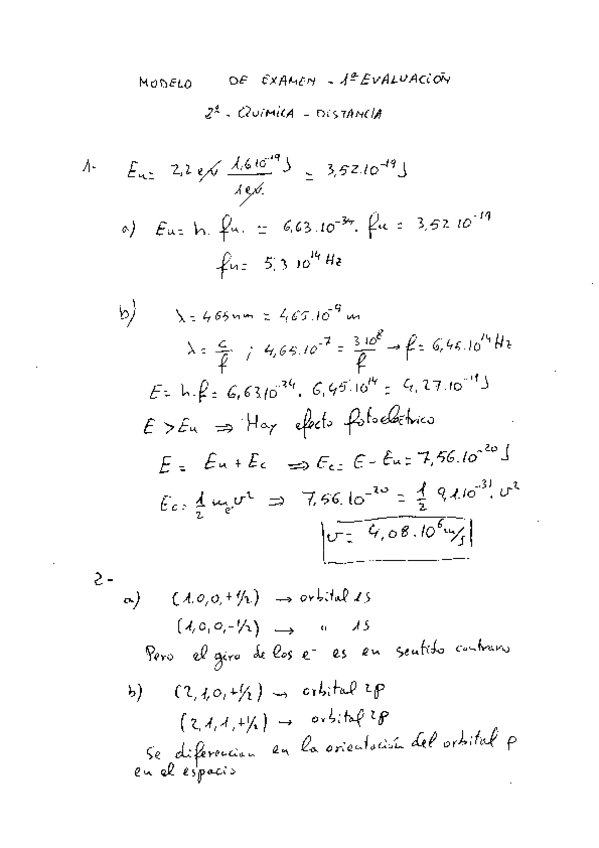 MODELO DE EXAMEN - 1ª EVALUACIÓN
2º - QUÍMICA - DISTANCIA
1- Eu = 2,2 eV 1,6 10^-19 J / 1 eV = 3,52.10^-19 J
a) Eu = h. fu. = 6,63.10^-34. fu = 3,52 10^-19
fu = 5,3 10^14 Hz
b) λ = 465 nm = 465.10^-9 m
λ = c/f ; 4,65.10^-7 = 3 10^8/f → f = 6,45.10^14 Hz
E = h.f = 6,63 10^-34. 6,45.10^14 = 4,27.10^-19 J
E > Eu ⇒ Hay efecto fotoeléctrico
E = Eu + Ec ⇒ Ec = E - Eu = 7,56.10^-20 J
Ec = 1/2 me v² ⇒ 7,56.10^-20 = 1/2 9,1.10^-31. v²
v = 4,08.10^6 m/s
2-
a) (1,0,0,+1/2) → orbital 1s
(1,0,0,-1/2) → " 1s
Pero el giro de los e⁻ es en sentido contrario
b) (2,1,0,+1/2) → orbital 2p
(2,1,1,+1/2) → orbital 2p
Se diferencian en la orientación del orbital p
en el espacio